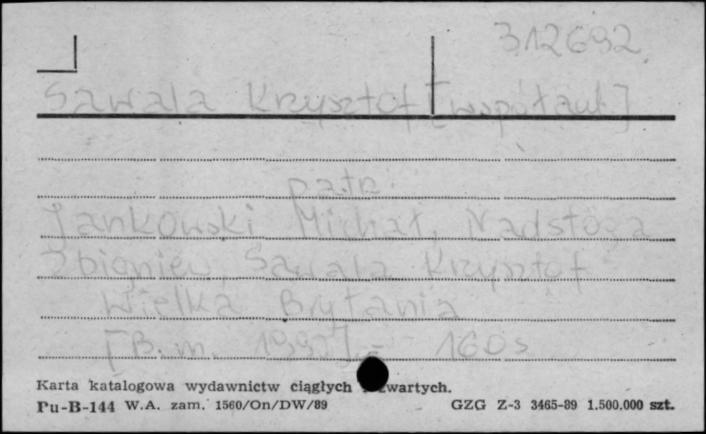 312692
Sawala Krzysztof [współaut]
patrz
Jankowski Michał, Nadstoga
Zbigniew, Sawala Krzysztof
Wielka Brytania
[B.m. 1990] - 160s
Karta katalogowa wydawnictw ciągłych zwartych.
Pu-B-144 W.A. zam. 1560/On/DW/89 GZG Z-3 3465-89 1.500.000 szt.